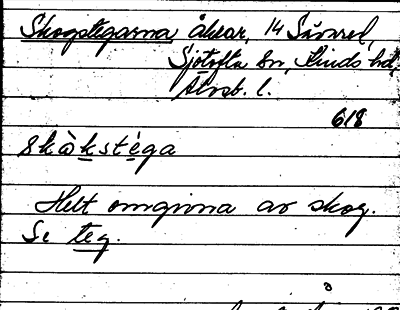 Skogstegarna åkrar, 14 Såvared,
Sjötofta sn, Kinds hd,
Älvsb. l.
618
skàkstéga
Helt omgivna av skog.
Se teg.